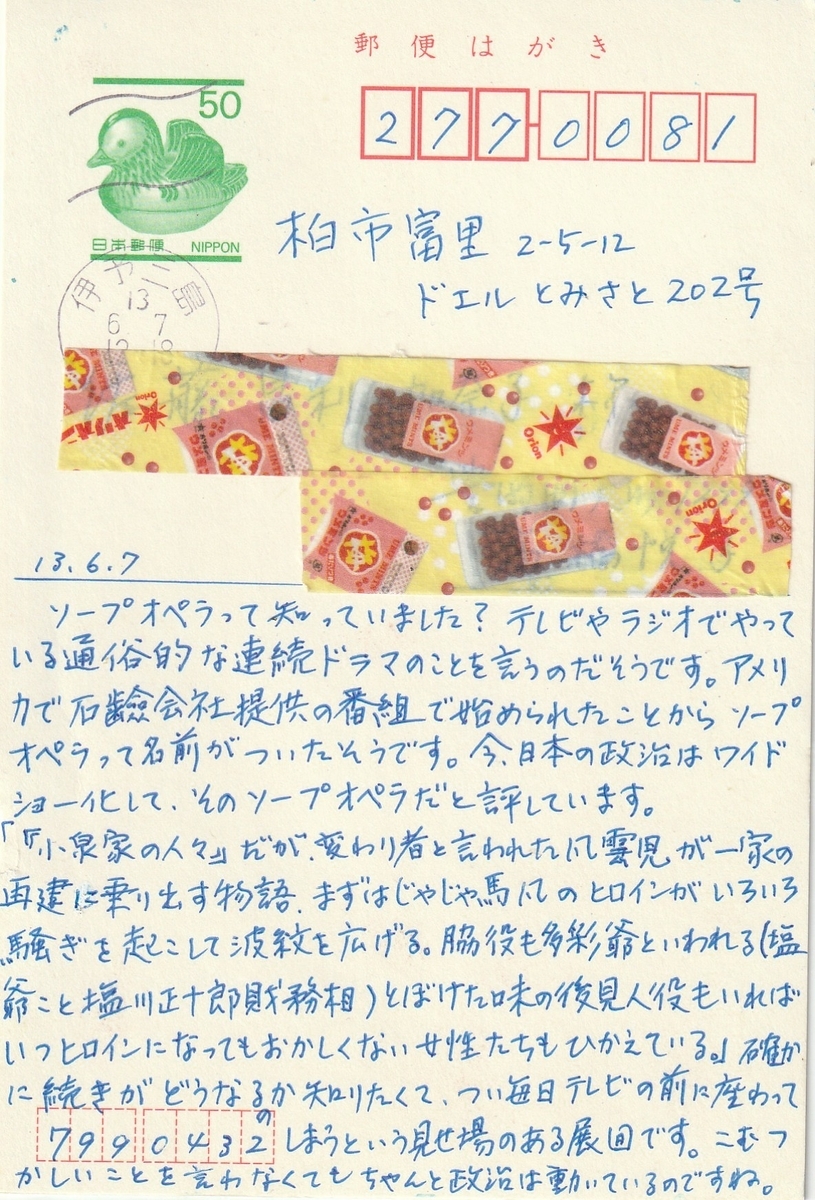 郵便はがき
50
277-0081
日本郵便 NIPPON
柏市富里 2-5-12
ドエルとみさと202号
伊予三島
13
6 7
Orion
オリオン
Orion
Orion
13.6.7
ソープオペラって知っていました？テレビやラジオでやって
いる通俗的な連続ドラマのことを言うのだそうです。アメリ
カで石鹸会社提供の番組で始められたことからソープ
オペラって名前がついたそうです。今、日本の政治はワイド
ショー化して、そのソープオペラだと評しています。
「『小泉家の人々』だが、変わり者と言われた風雲児が一家の
再建に乗り出す物語、まずはじゃじゃ馬風のヒロインがいろいろ
騒ぎを起こして波紋を広げる。脇役も多彩爺といわれる(塩
爺こと塩川正十郎財務相)とぼけた味の後見人役もいれば
いつヒロインになってもおかしくない女性たちもひかえている。」確か
に続きがどうなるか知りたくて、つい毎日テレビの前に座わって
7990432の しまうという見せ場のある展開です。こむつ
かしいことを言わなくてもちゃんと政治は動いているのですね。